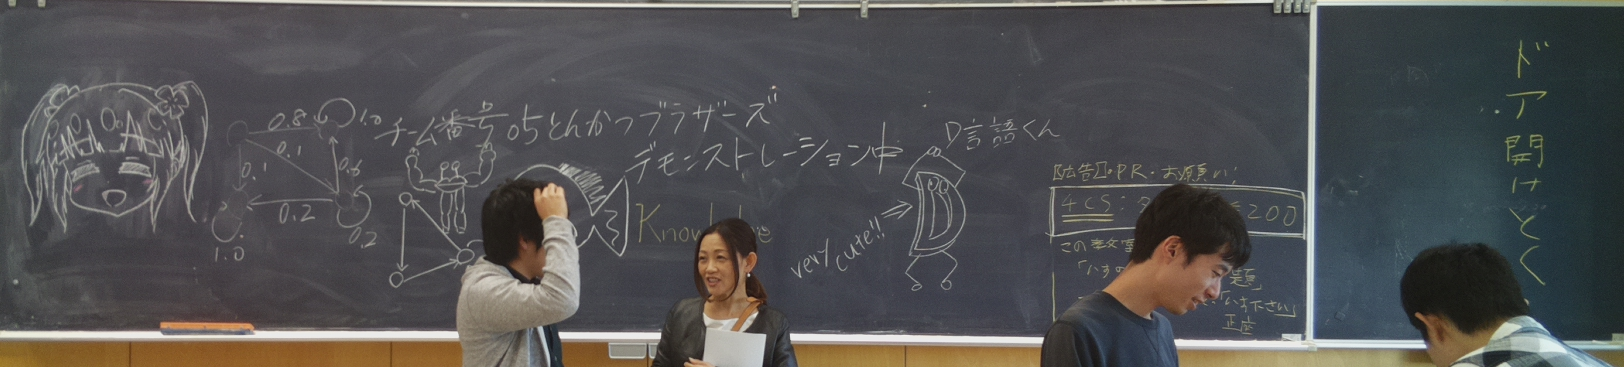 0.8
1.0
0.1
0.1
0.6
0.2
0.2
1.0
チーム番号05とんかつブラザーズ
デモンストレーション中
D言語くん
very cute!!
【広告】PR・お願い
4CS:
200
この教室
「いす
「いす下さい」
正座
ドア開けとく